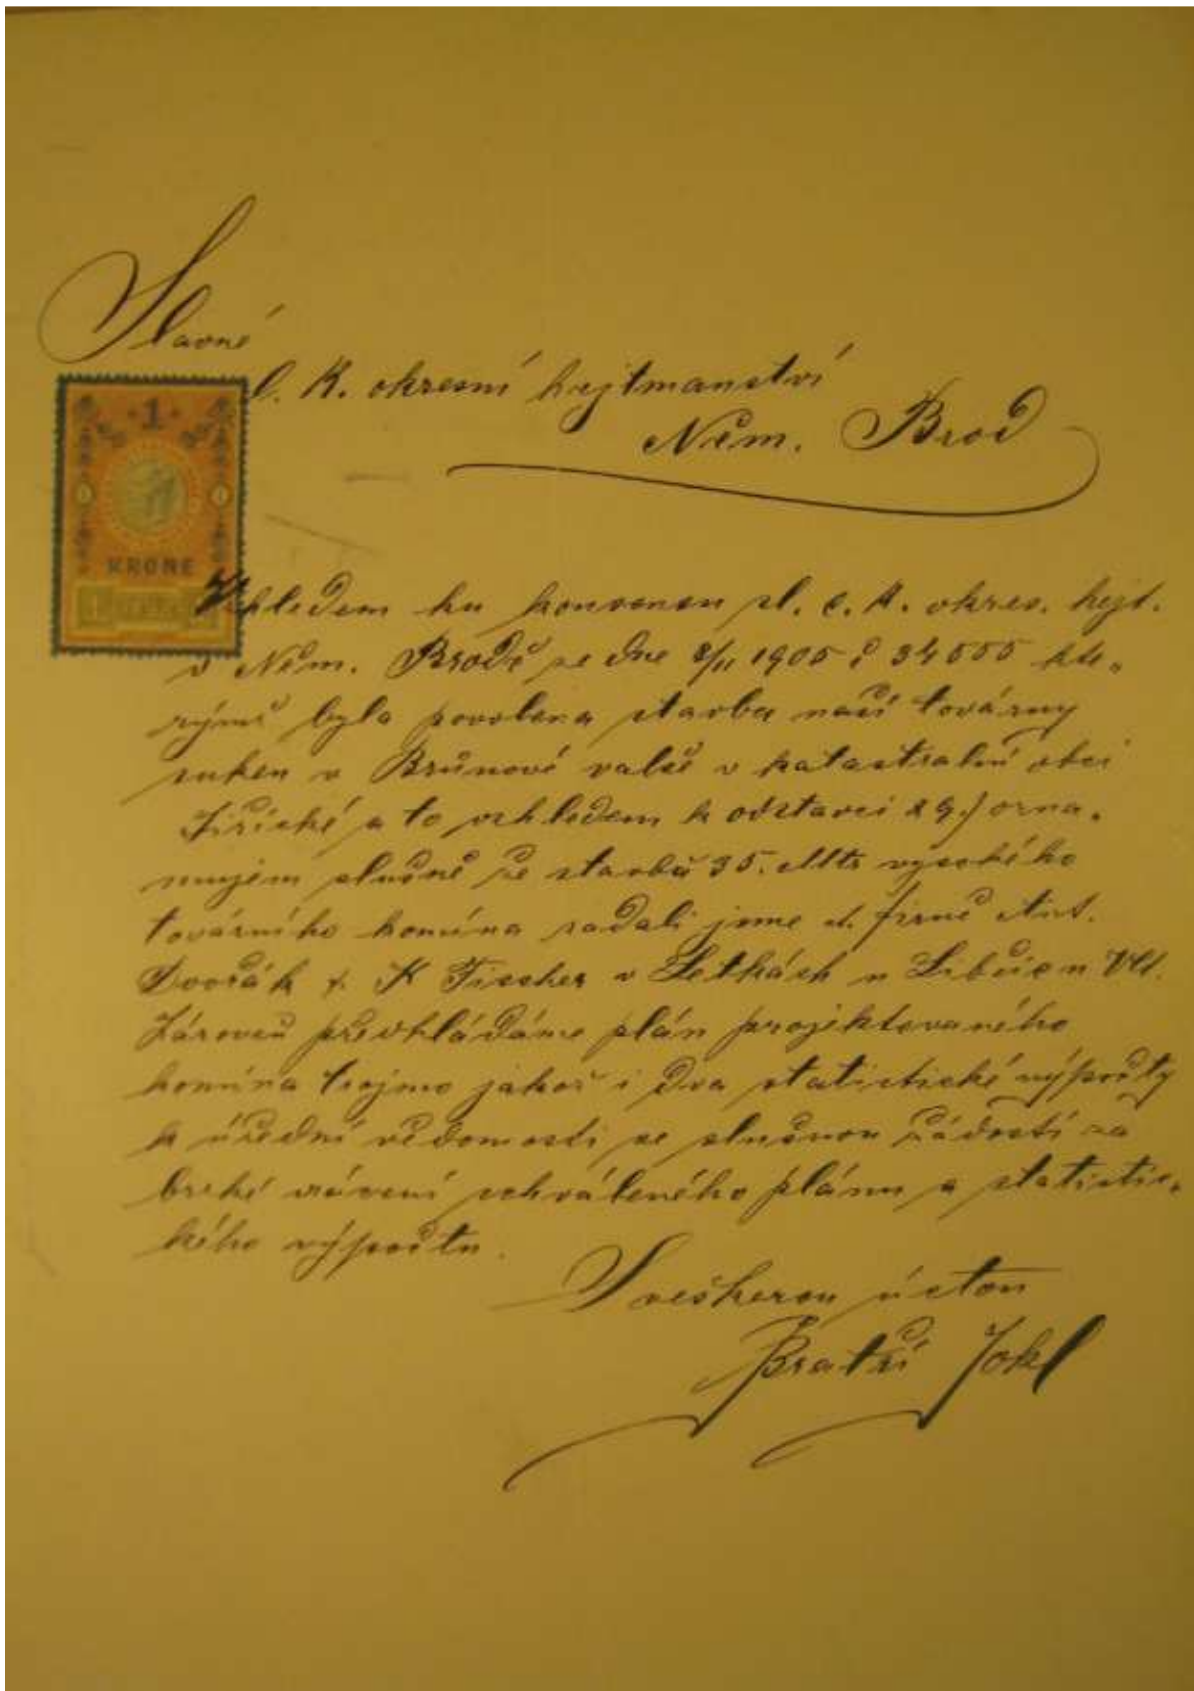 Slavné
c. K. okresní hejtmanství
Něm. Brod
1
KRONE
Vzhledem ku konsensu sl. c. K. okres. hejt.
v Něm. Brodě ze dne 8/11 1905 č 34555 kte„
rýmž byla povolena stavba naší továrny
suken v Brůnově valše v katastralní obci
Jiřické a to vzhledem k odstavci 29.) ozna„
mujem slušně že stavbu 35. Mtr vysokého
továrního komína zadali jsme sl. firmě Ant.
Dvořák & K Fischer v Letkách u Libšic n Vlt.
Zároveň předkládáme plán projektovaného
komína trojmo jakož i dva statistické výpočty
k úřední vědomosti se slušnou žádostí za
brzké vrácení schváleného plánu a statistic„
kého výpočtu.
S veškerou úctou
Bratří Jokl